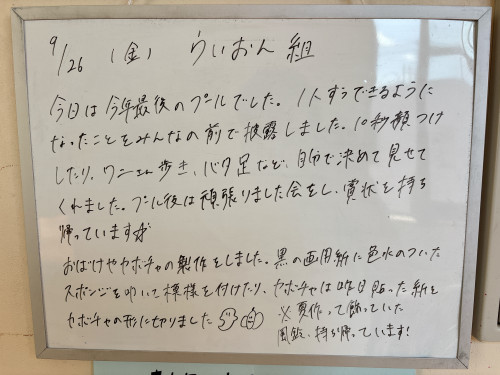 9/26 (金) らいおん組
今日は今年最後のプールでした。1人ずつできるように
なったことをみんなの前で披露しました。10秒顔つけ
したり、ワニさん歩き、バタ足など、自分で決めて見せて
くれました。プール後は頑張りました会をし、賞状を持ち
帰っています☆
おばけやカボチャの製作をしました。黒の画用紙に色水のついた
スポンジを叩いて模様を付けたり、カボチャは昨日貼った紙を
カボチャの形に切りました
※夏作って飾っていた
風鈴、持ち帰っています!